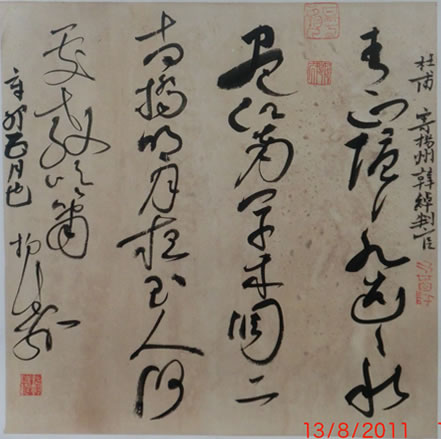 杜甫 寄揚州韓綽判官
青山隱〻水迢〻秋
盡江南草未凋二
十四橋明月夜玉人何
處教吹簫
辛卯正月也
13/8/2011